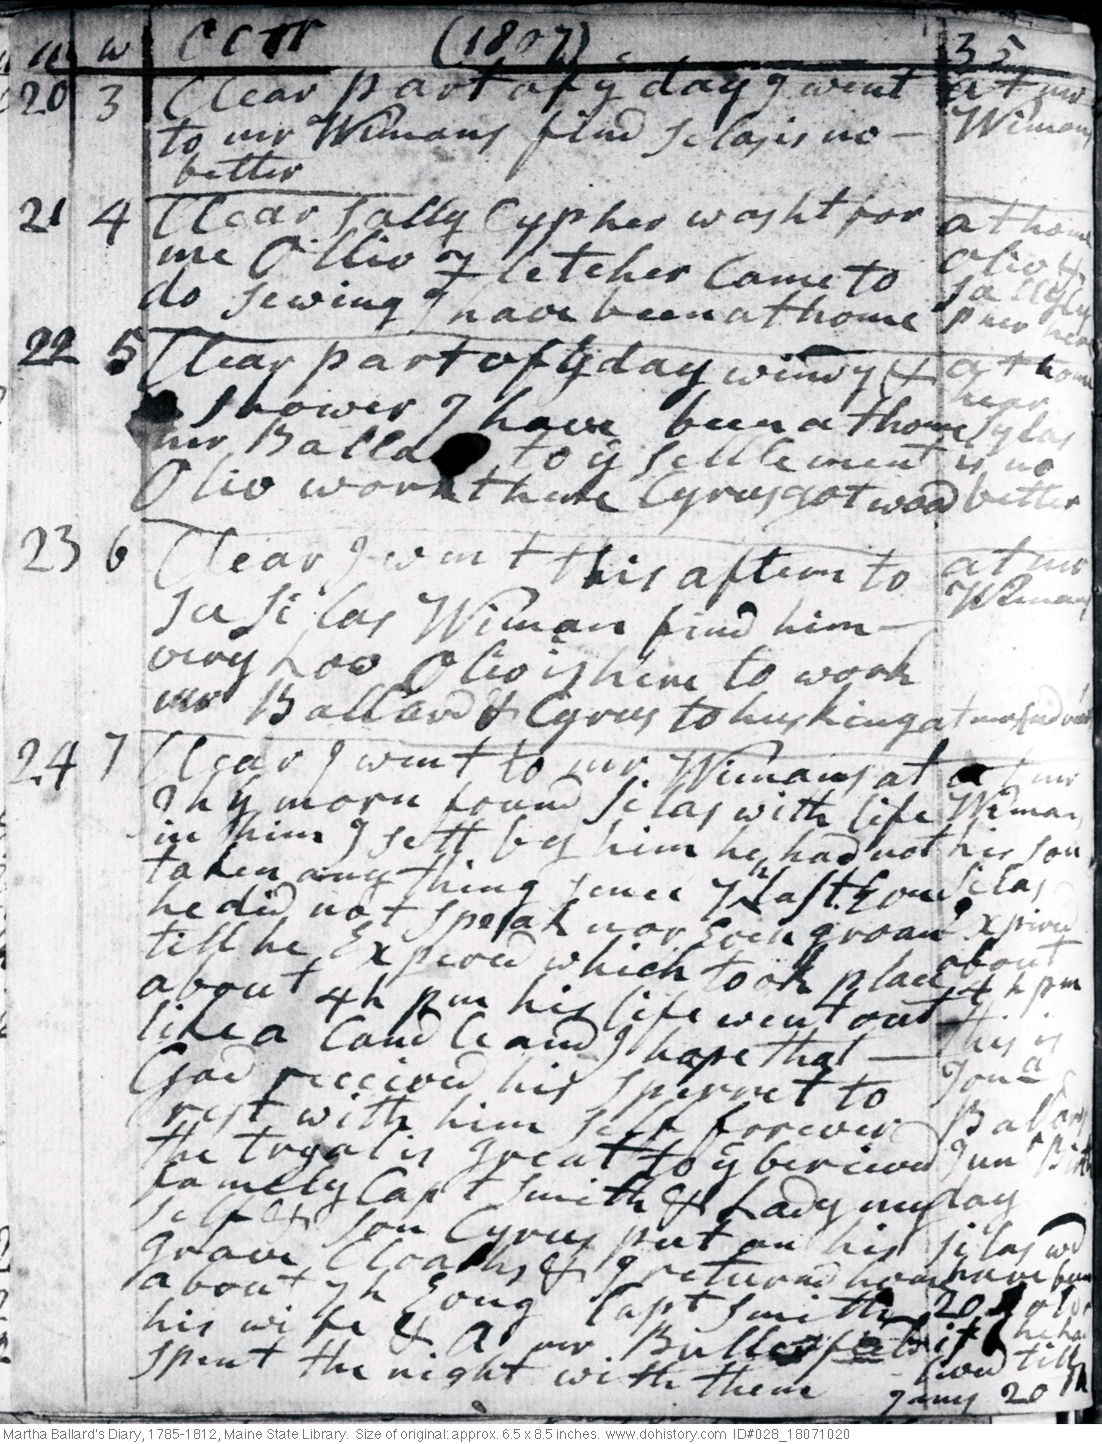 m w Octr (1807) 35
20 3 Clear part of ÿ day I went
to mr Wimans find Silas is no
better
at mr
Wimans
21 4 Clear Sally Cypher washt for
me Ollive Fletcher Came to
do sewing I have been at home
at home
Olive &
Sally Cy
pher here
22 5 Clear part of ÿ day windy &
Shower I have been at home
mr Ballard to ÿ settlement
Olive workt here Cyrus got wood
at home
hear
Sylas
is no
better
23 6 Clear I went this aftern to
see Silas Wiman find him
very Low Olive is here to work
mr Ballard & Cyrus to husking at mr
at mr
Wimans
24 7 Clear I went to mr Wimans at
ÿ morn found Silas with life
in him I sett by him he had not
taken any thing since ÿ last Evn
he did not speak nor Even groan
till he Expired which took place
about 4 h pm his life went out
like a Candle and I hope that
God receivd his Sperret to
rest with him self forever
the tryal is great to ÿ berievd
famely Capt Smith & Lady my
self & son Cyrus put on his
grave Cloaths & I returnd home
about 7 h Evng Capt Smith
his wife & a mr Bullen
spent the night with them
at mr
Wimans
his son
Silas
Expired
about
4 h pm
this is
Jona
Ballard
Junr Birth
day
Silas wd
have been
20 s old
if he had
lived till
Jany 20
Martha Ballard's Diary, 1785-1812, Maine State Library. Size of original: approx. 6.5 x 8.5 inches. www.dohistory.com ID#028_18071020